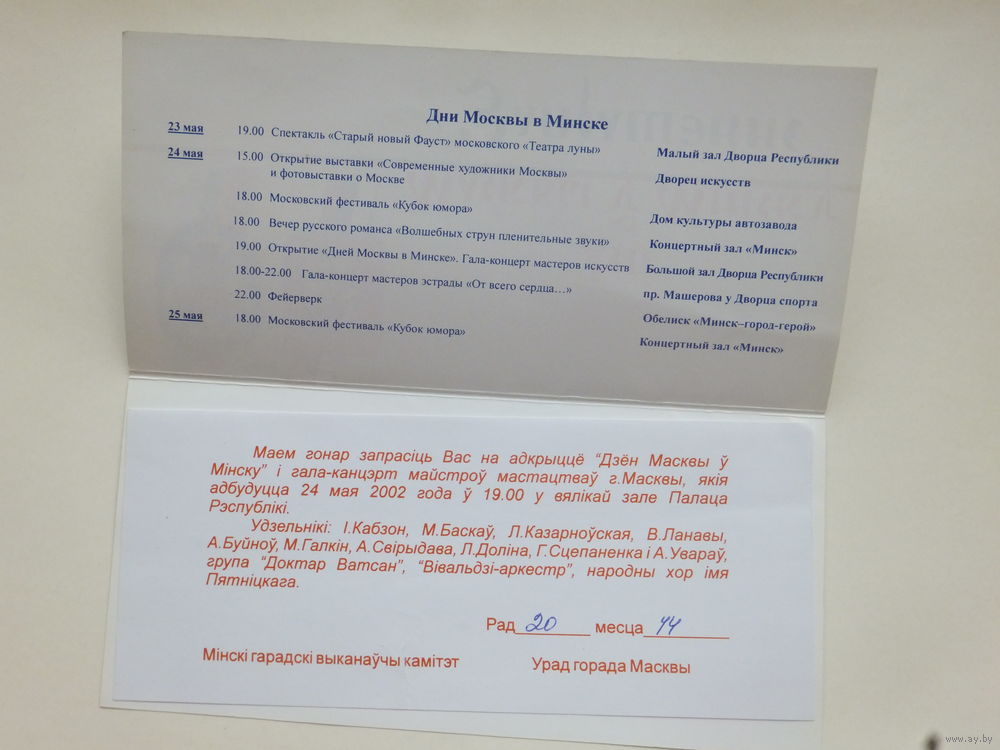 Дни Москвы в Минске
23 мая 19.00 Спектакль «Старый новый Фауст» московского «Театра луны» Малый зал Дворца Республики
24 мая 15.00 Открытие выставки «Современные художники Москвы» Дворец искусств
и фотовыставки о Москве
18.00 Московский фестиваль «Кубок юмора» Дом культуры автозавода
18.00 Вечер русского романса «Волшебных струн пленительные звуки» Концертный зал «Минск»
19.00 Открытие «Дней Москвы в Минске». Гала-концерт мастеров искусств Большой зал Дворца Республики
18.00-22.00 Гала-концерт мастеров эстрады «От всего сердца…» пр. Машерова у Дворца спорта
22.00 Фейерверк Обелиск «Минск–город-герой»
25 мая 18.00 Московский фестиваль «Кубок юмора» Концертный зал «Минск»
Маем гонар запрасіць Вас на адкрыццё “Дзён Масквы ў
Мінску” і гала-канцэрт майстроў мастацтваў г.Масквы, якія
адбудуцца 24 мая 2002 года ў 19.00 у вялікай зале Палаца
Рэспублікі.
Удзельнікі: І.Кабзон, М.Баскаў, Л.Казарноўская, В.Ланавы,
А.Буйноў, М.Галкін, А.Свірыдава, Л.Доліна, Г.Сцепаненка і А.Увараў,
група “Доктар Ватсан”, “Вівальдзі-аркестр”, народны хор імя
Пятніцкага.
Рад 20 месца 44
Мінскі гарадскі выканаўчы камітэт Урад горада Масквы
www.ay.by